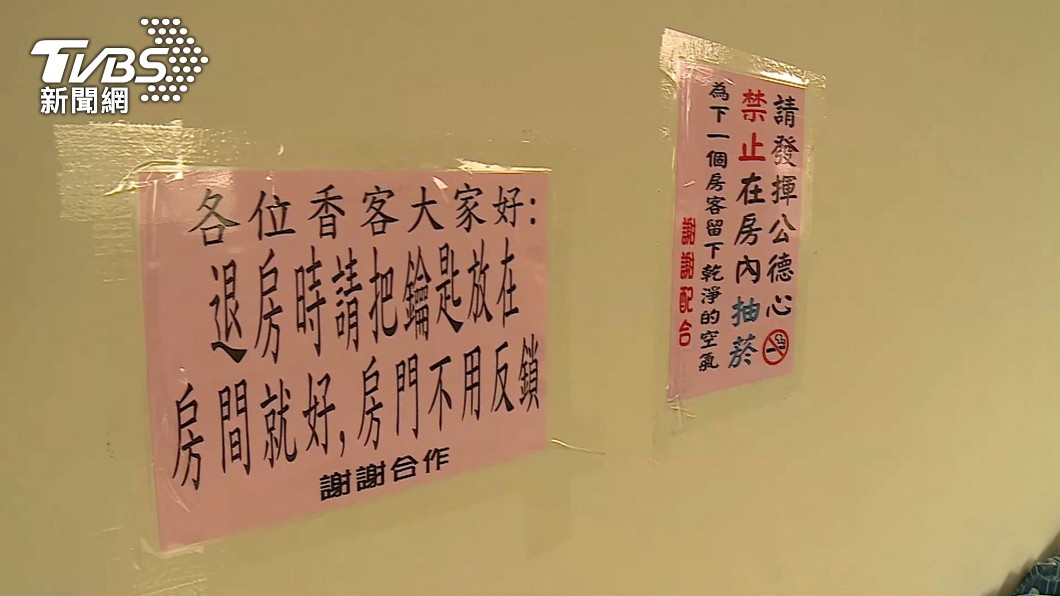 TVBS
新聞網
各位香客大家好:
退房時請把鑰匙放在
房間就好,房門不用反鎖
謝謝合作
請發揮公德心
禁止在房內抽菸
為下一個房客留下乾淨的空氣
謝謝配合